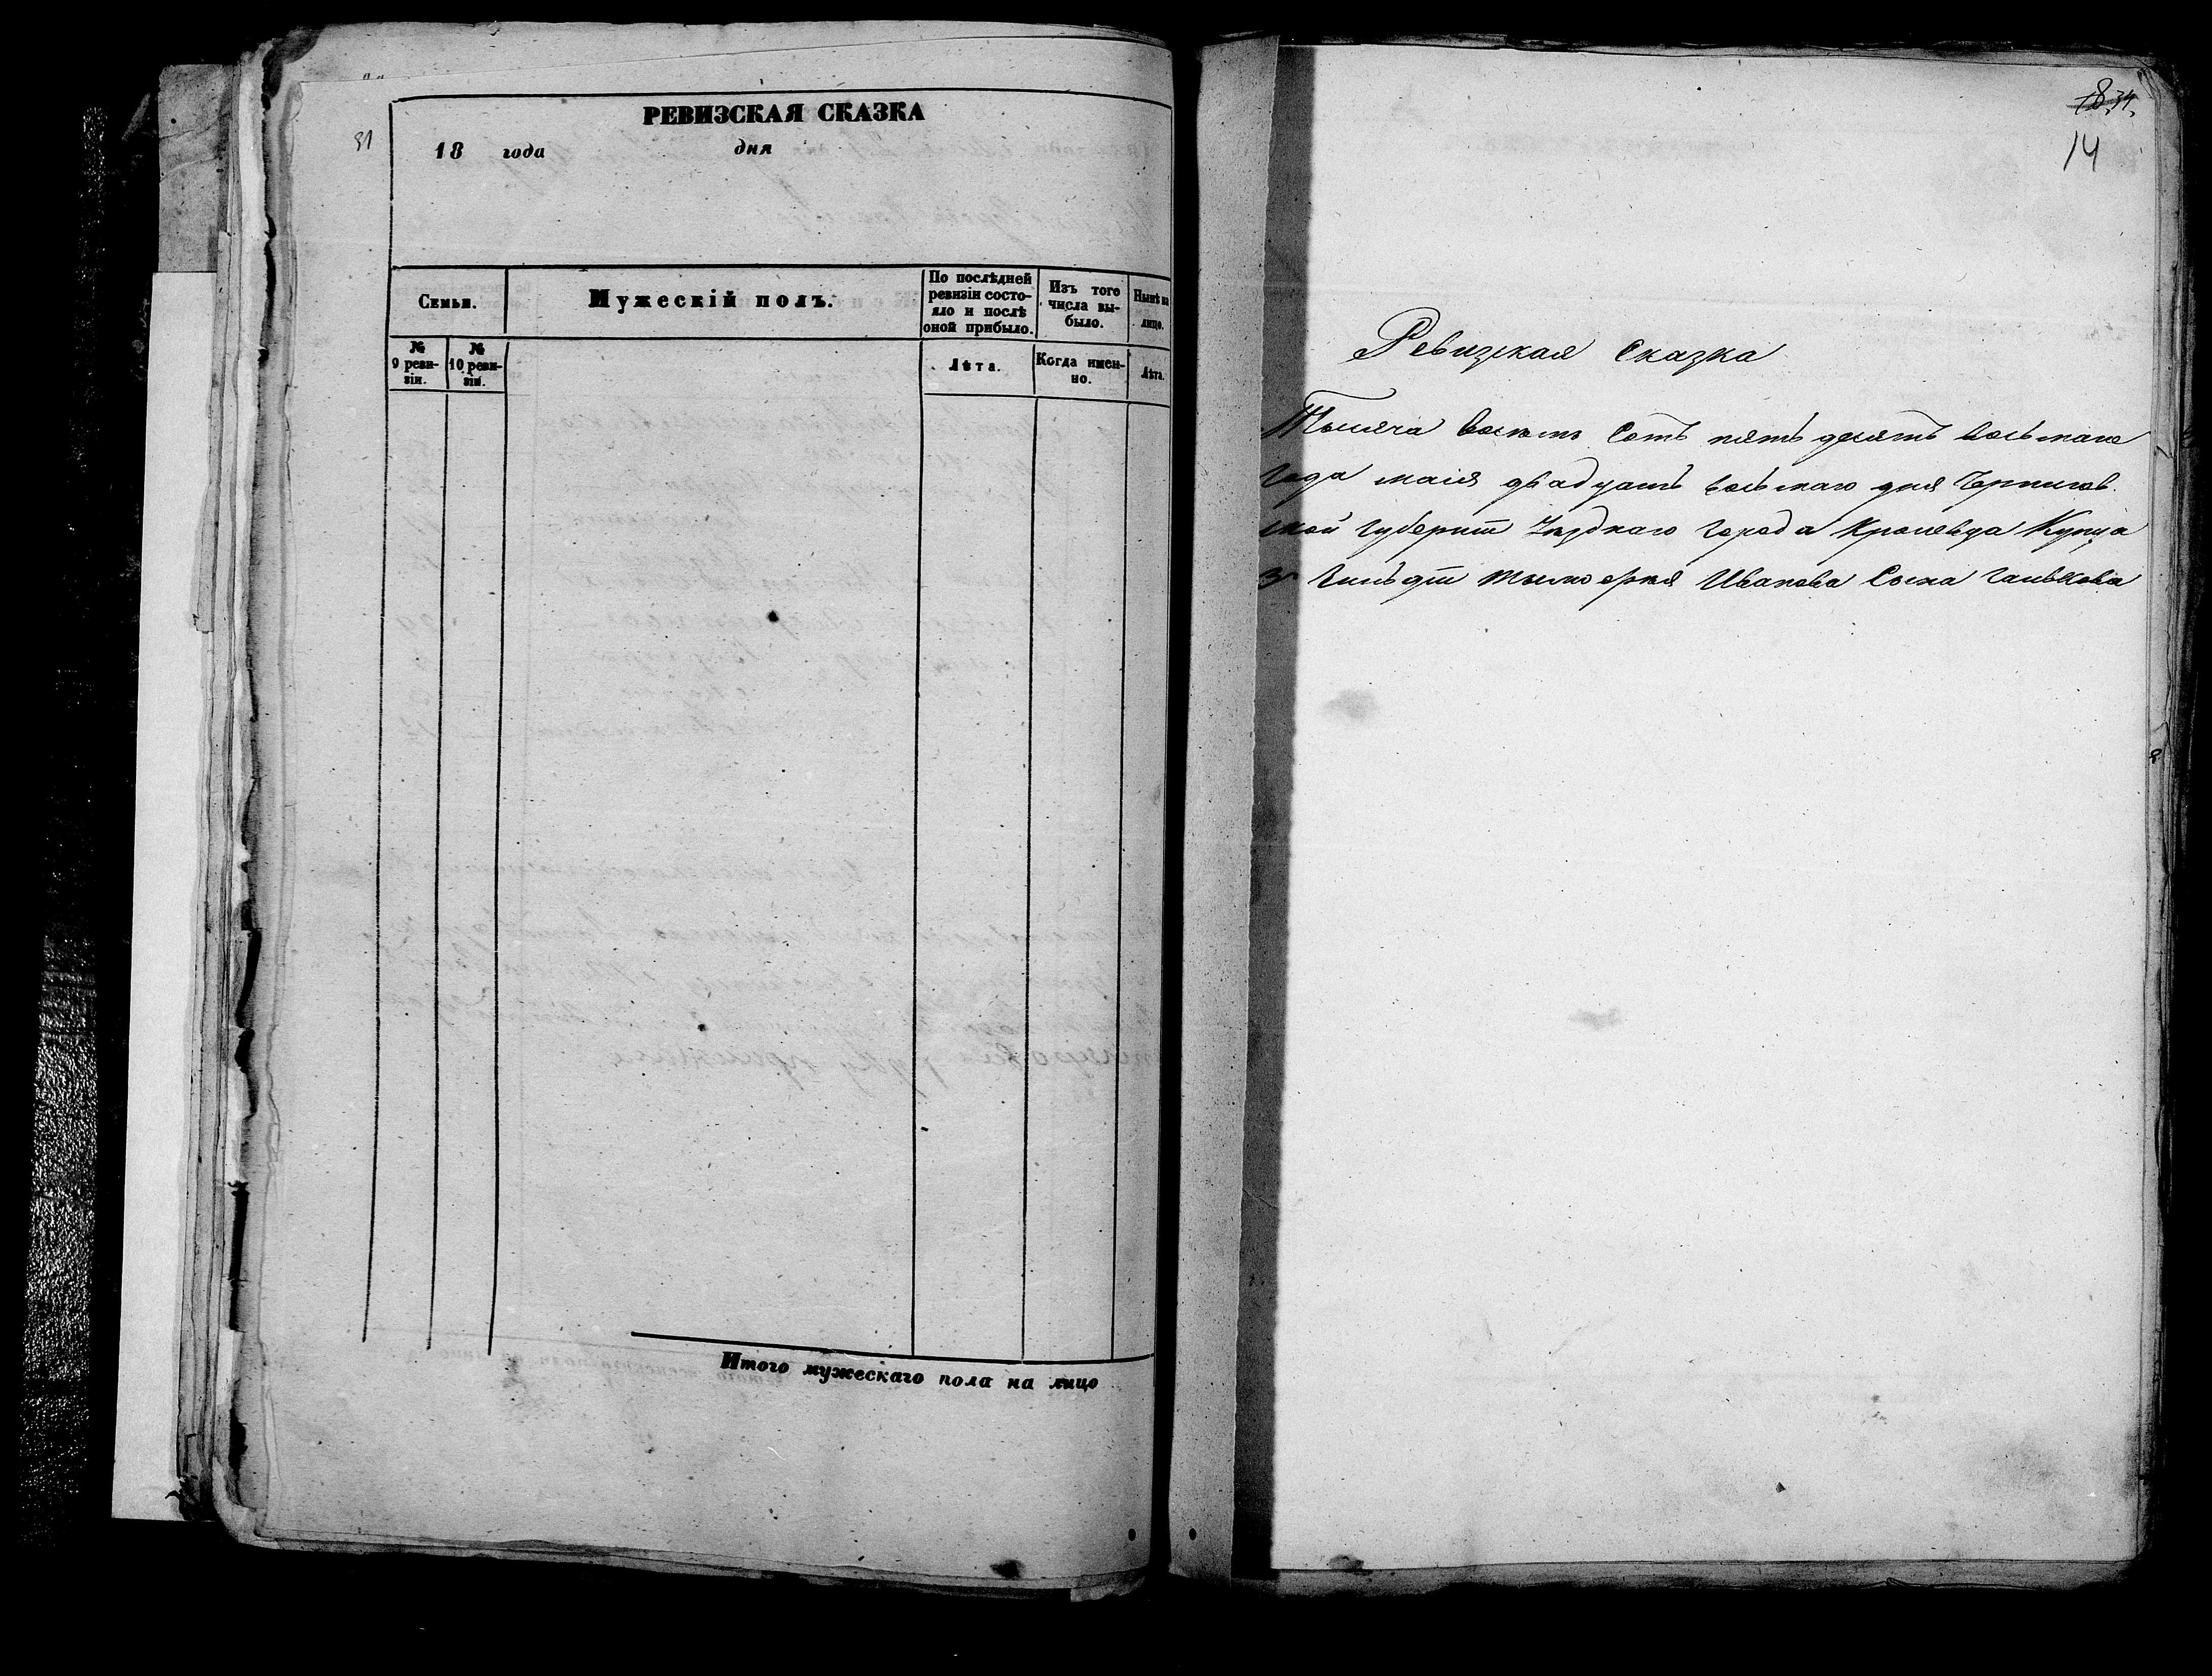 31
РЕВИЗСКАЯ СКАЗКА
18 года дня
Семьи.
Мужескій полъ.
По послѣдней ревизіи состояло и послѣ оной прибыло.
Изъ того числа выбыло.
Нынѣ на лицо.
№ 9 ревизіи.
№ 10 ревизіи.
Лѣта.
Когда именно.
Лѣта.
Итого мужескаго пола на лицо
14
Ревизская Сказка
Тысяча восемь сотъ пять десятъ восьмаго
года маія двадцать восьмаго дня Чернигов
ской Губерніи Уѣзднаго города Кролевца Купца
3й Гильдіи Тимофея Иванова Сына